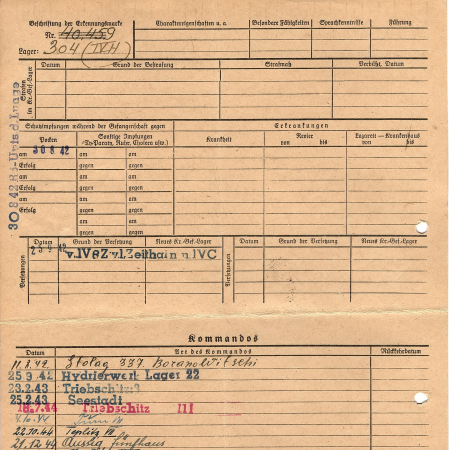 Beschriftung der Erkennungsmarke
Nr. 40459
Lager: 304 (IV H)
Charaktereigenschaften u. a.
Besondere Fähigkeiten
Sprachkenntnisse
Führung
Strafen im Kr.-Gef.-Lager
Datum
Grund der Bestrafung
Strafmaß
Verbüßt, Datum
Schutzimpfungen während der Gefangenschaft gegen
Erkrankungen
Pocken
Sonstige Impfungen
(Ty-Paraty, Ruhr, Cholera usw.)
Krankheit
Revier
von bis
Lazarett — Krankenhaus
von bis
30 8 42
am am
Erfolg gegen
am am
Erfolg gegen
am am
Erfolg gegen
am
gegen
am
gegen
Versetzungen
Datum
Grund der Versetzung
Neues Kr.-Gef.-Lager
Datum
Grund der Versetzung
Neues Kr.-Gef.-Lager
v. IV e Z v. l. Zeithain n IV C
Kommandos
Datum
Art des Kommandos
Rückkehrdatum
Stalag 337
25 9. 42 Hydrierwerk Lager 22
23.2.43 Triebschitz
25.2.43 Seestadt
18.7.44 Triebschitz III
22.10.44 Teplitz
21.12.44 Aussig